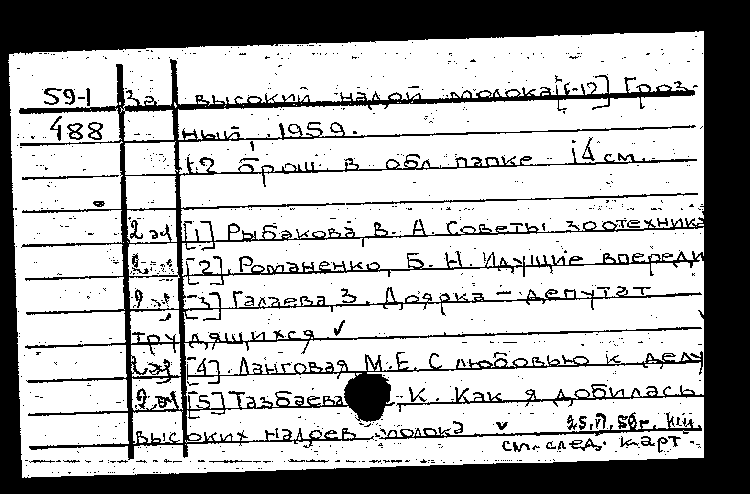 59-1 За высокий надой молока [1-12] Гроз-
488 ный, 1959.
12 брош. в обл. папке 14 см.
2 эк [1] Рыбакова, В. А. Советы зоотехника
[2]. Романенко, Б. Н. Идущие впереди
2 эк [3] Галаева, З. Доярка – депутат
трудящихся ✓
2 эк [4].Ланговая М. Е. С любовью к делу
2 эк [5] Тазбаева, К. Как я добилась
высоких надоев молока ✓
см. след. карт.